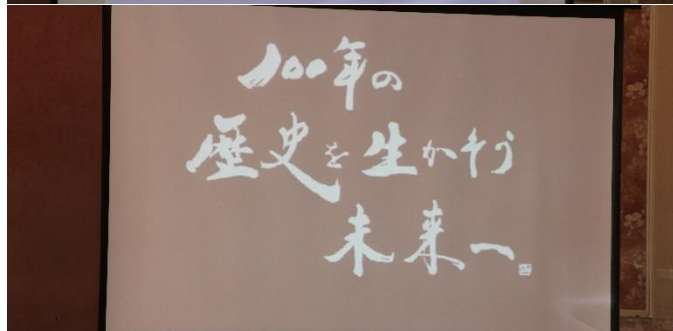 100年の
歴史を生かそう
未来へ